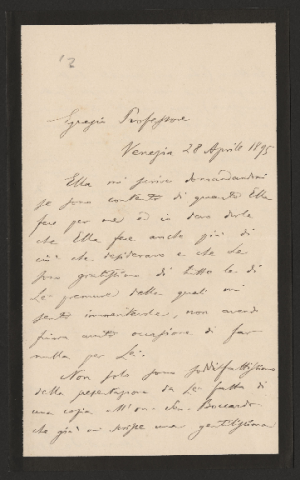 Egregio Professore
Venezia 28 Aprile 1895
Ella mi scrive domandandomi
se sono contento di quanto Ella
fece per me ed io devo dirle
che Ella fece anche più di
ciò che desideravo e che Le
sono gratissimo di tutte le di
Lei premure delle quali mi
sento immeritevole, non avendo
finora avuto occasione di far
nulla per Lei.
Non solo sono soddisfattissimo
della presentazione da Lei fatta di
una copia all'on. Sen. Boccardo
che già mi scrisse una gentilissima